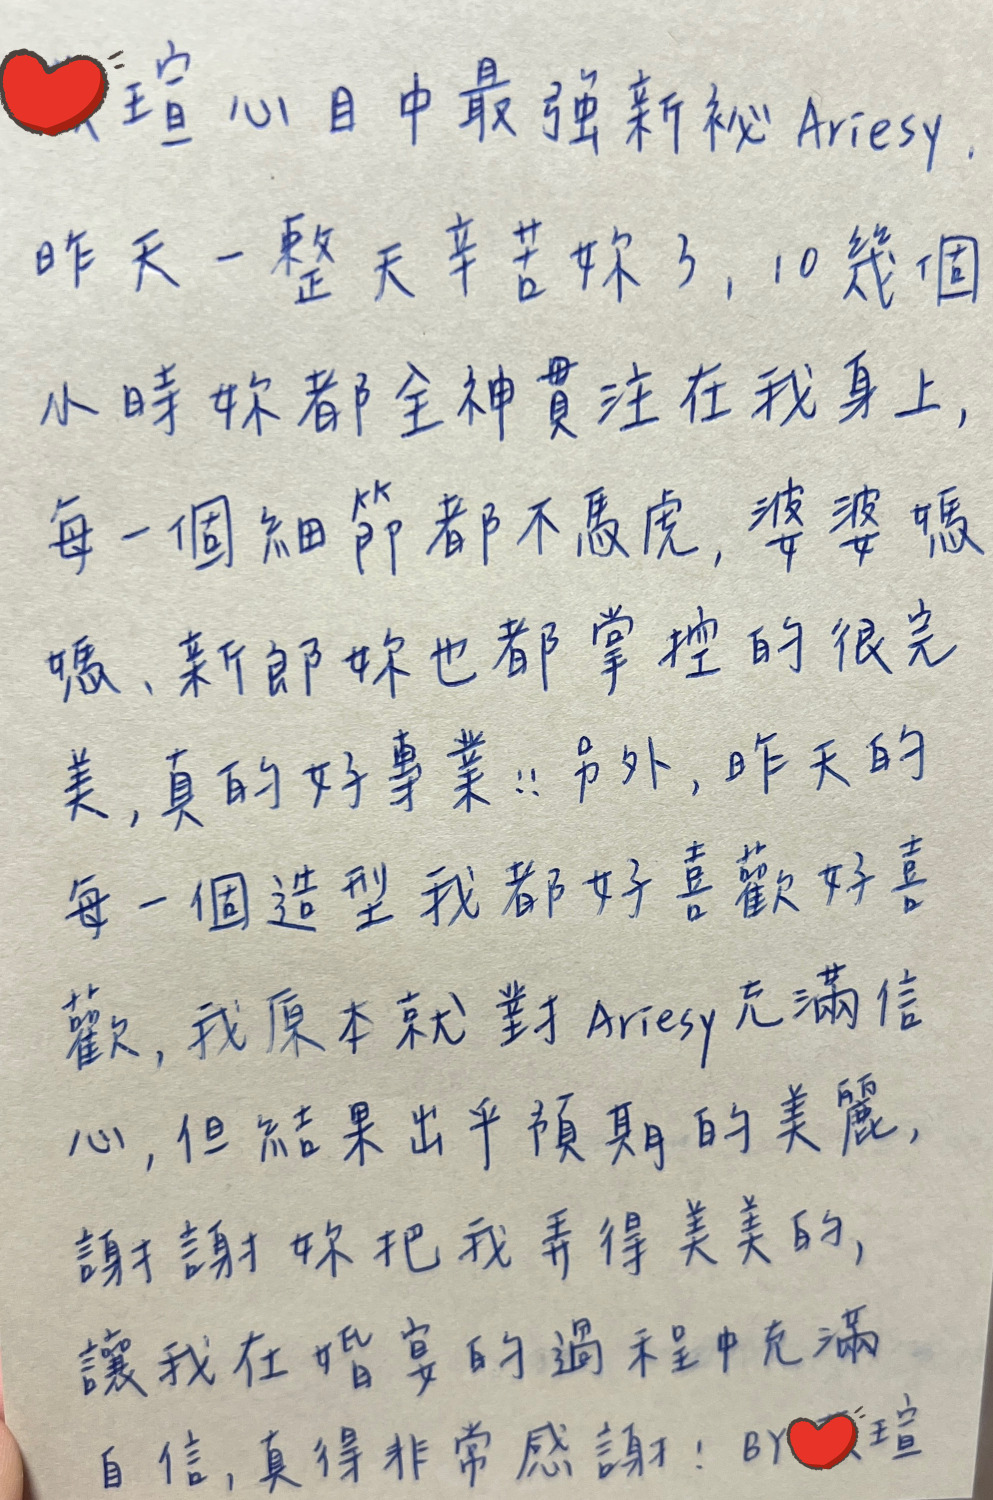 瑄心目中最強新祕Ariesy.
昨天一整天辛苦妳了,10幾個
小時妳都全神貫注在我身上,
每一個細節都不馬虎,婆婆媽
媽、新郎妳也都掌控的很完
美,真的好專業!!另外,昨天的
每一個造型我都好喜歡好喜
歡,我原本就對Ariesy充滿信
心,但結果出乎預期的美麗,
謝謝妳把我弄得美美的,
讓我在婚宴的過程中充滿
自信,真得非常感謝! BY 瑄